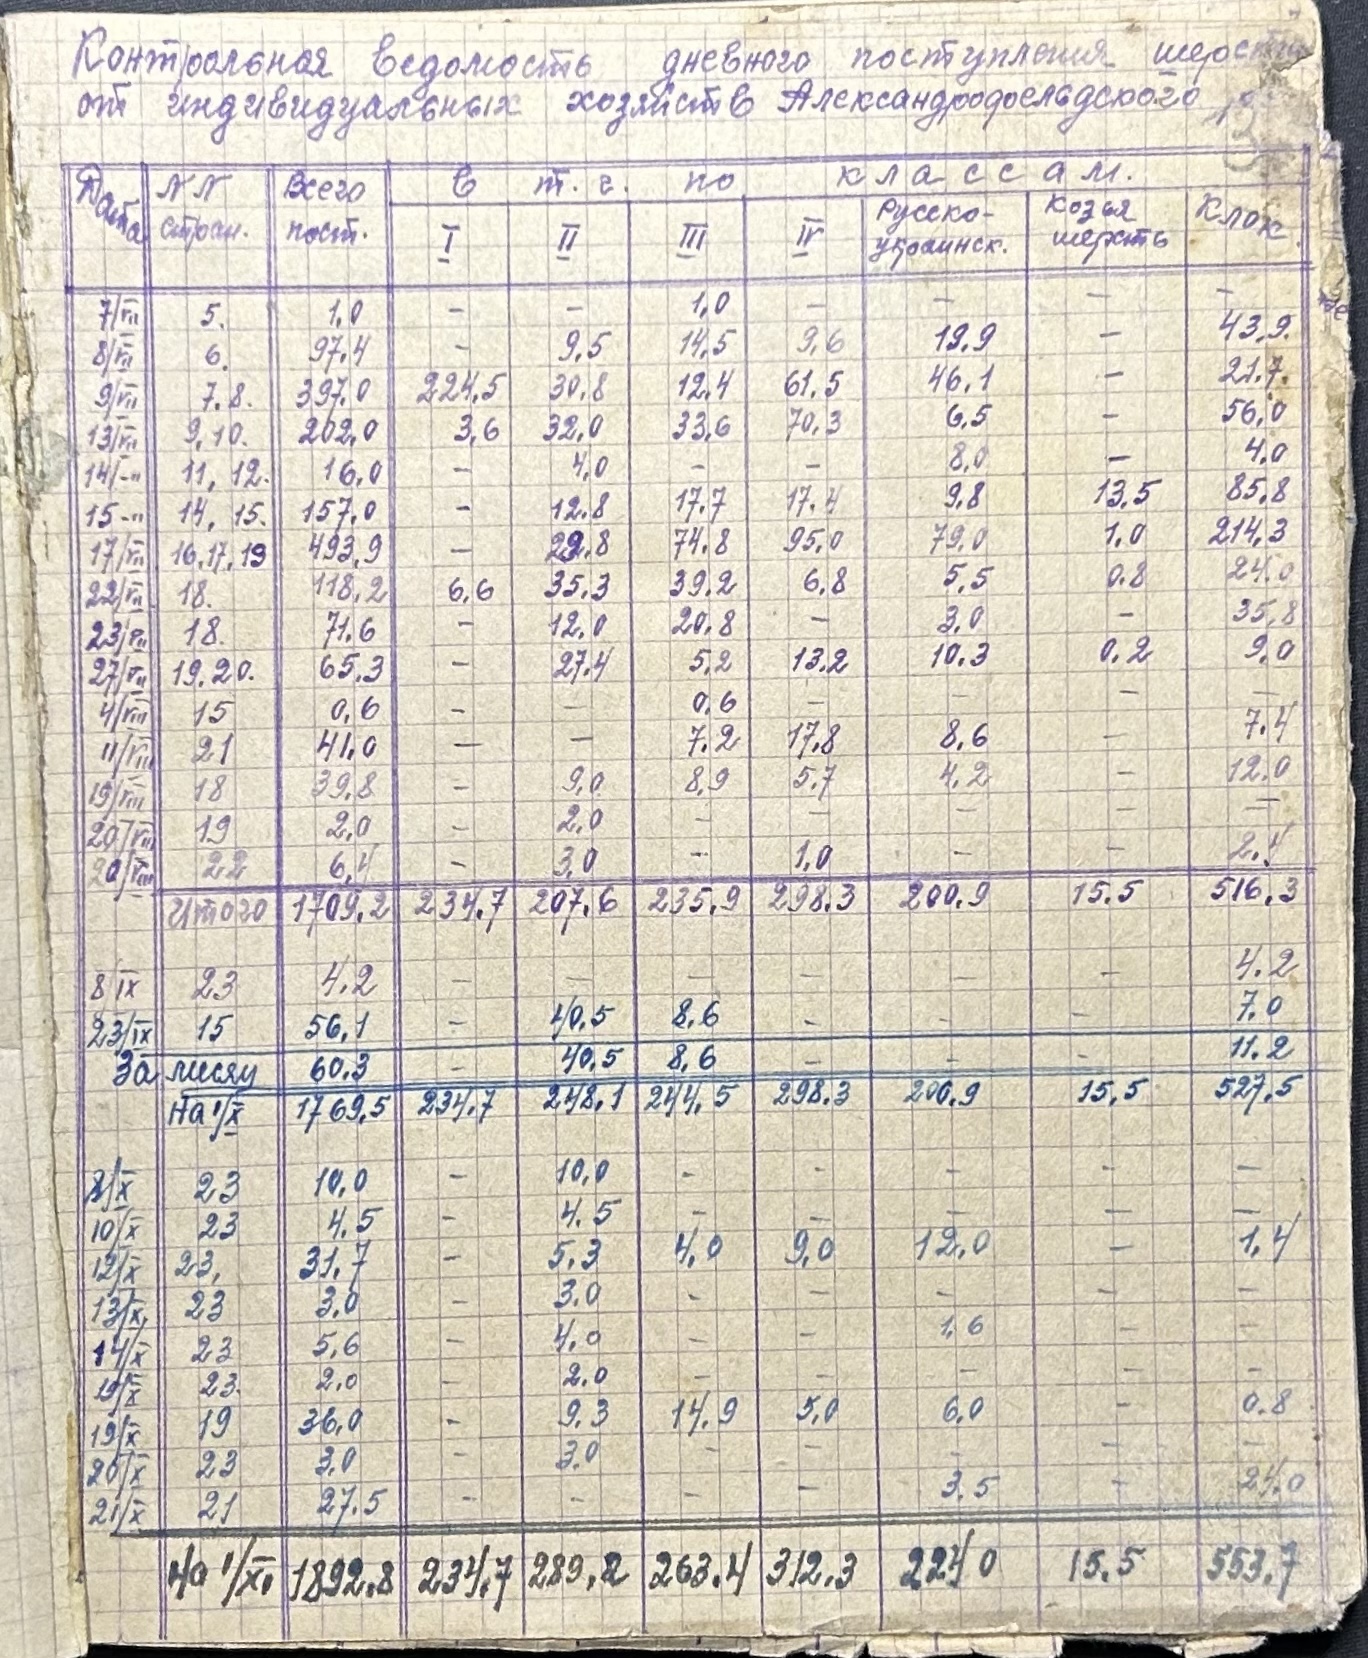 Контрольная ведомость дневного поступления шерсти
от индивидуальных хозяйств Александродоельдского
Дата NN стран. Всего пост. в т. ч. по классам.
I II III IV Русско-украинск. Козья шерсть Клок.
7/VII 5. 1,0 – – 1,0 – – – –
8/VII 6. 97.4 – 9,5 14,5 9,6 19,9 – 43,9.
9/VII 7.8. 397.0 224,5 30,8 12,4 61,5 46,1 – 21.7.
13/VII 9,10. 202,0 3,6 32,0 33,6 70,3 6,5 – 56,0
14/–"– 11, 12. 16,0 – 4,0 – – 8,0 – 4,0
15 –"– 14, 15. 157,0 – 12.8 17.7 17.4 9.8 13,5 85,8
17/VII 16,17,19 493,9 – 29.8 74.8 95,0 79,0 1,0 214,3
22/VII 18. 118,2 6,6 35,3 39,2 6,8 5,5 0.8 24.0
23/VII 18. 71.6 – 12,0 20.8 – 3,0 – 35,8
27/VII 19.20. 65.3 – 27.4 5,2 13,2 10.3 0.2 9,0
4/VIII 15 0,6 – – 0,6 – – – –
11/VIII 21 41,0 – – 7.2 17.8 8,6 – 7.4
19/VIII 18 39,8 – 9,0 8,9 5,7 4,2 – 12,0
20/VIII 19 2,0 – 2,0 – – – – –
20/VIII 22 6,4 – 3,0 – 1,0 – – 2,4
Итого 1709,2 234,7 207,6 235,9 298,3 200,9 15,5 516,3
8 IX 23 4.2 – – – – – – 4.2
23/IX 15 56,1 – 40,5 8.6 – – – 7.0
За месяц 60.3 – 40,5 8,6 – – – 11.2
На 1/X 1769,5 234,7 248,1 244,5 298.3 200,9 15,5 527,5
8/X 23 10,0 – 10,0 – – – – –
10/X 23 4.5 – 4.5 – – – – –
12/X 23, 31,7 – 5,3 4,0 9,0 12,0 – 1,4
13/X, 23 3,0 – 3,0 – – – – –
14/X 23 5,6 – 4,0 – – 1,6 – –
19/X 23. 2,0 – 2.0 – – – – –
19/X 19 36,0 – 9.3 14,9 5,0 6,0 – 0.8
20/X 23 3,0 – 3,0 – – – – –
21/X 21 27.5 – – – – 3.5 – 24,0
На 1/XI 1892,8 234,7 289,2 263.4 312,3 224,0 15.5 553,7